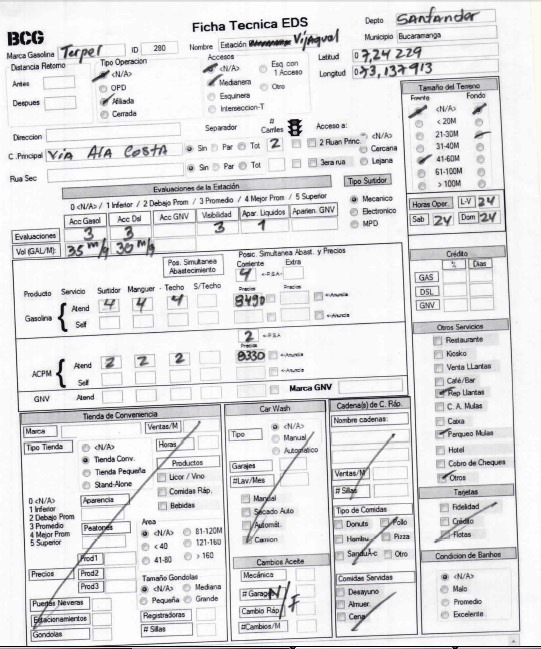 BCG
Ficha Tecnica EDS
Depto Santander
Municipio Bucaramanga
Marca Gasolina Terpel ID 280 Nombre Estación Vijagual
Latitud 07,24 229
Longitud 073,137913
Distancia Retorno
Antes
Despues
Tipo Operacion
<N/A>
OPD
Afiliada
Cerrada
Accesos
<N/A>
Medianera
Esquinera
Interseccion-T
Esq con 1 Acceso
Otro
Tamaño del Terreno
Frente Fondo
<N/A>
< 20M
21-30M
31-40M
41-60M
61-100M
> 100M
Direccion
Separador
# Carriles
Acceso a:
C .Principal Via A la Costa Sin Par Tot 2 2 Ruan Princ.
Rua Sec Sin Par Tot 3era rua
<N/A>
Cercana
Lejana
Horas Oper. L-V 24
Sab 24 Dom 24
Evaluaciones de la Estación
0 <N/A> / 1 Inferior / 2 Debajo Prom / 3 Promedio / 4 Mejor Prom / 5 Superior
Acc Gasol Acc Dsl Acc GNV Visibilidad Apar. Liquidos Aparien. GNV
Evaluaciones 3 3 3 1
Vol (GAL/M): 35 m/g 30 m/g
Tipo Surtidor
Mecanico
Electronico
MPD
Crédito
% Dias
GAS
DSL
GNV
Pos. Simultanea Abastecimiento
Posic. Simultanea Abast. y Precios
Corriente Extra
4 <-P.S.A-
Producto Servicio Surtidor Manguer - Techo S/Techo Precios Precios
Gasolina Atend 4 4 4 8490 <-Anuncia
Self <-Anuncia
2 <-P.S.A
Precios
ACPM Atend 2 2 2 8330 <-Anuncia
Self <-Anuncia
GNV Atend Marca GNV
Otros Servicios
Restaurante
Kiosko
Venta LLantas
Café/Bar
Rep Llantas
C. A. Mulas
Caixa
Parqueo Mulas
Hotel
Cobro de Cheques
Otros
Tarjetas
Fidelidad
Crédito
Flotas
Condicion de Banhos
<N/A>
Malo
Promedio
Excelente
Tienda de Conveniencia
Marca Ventas/M
Tipo Tienda
<N/A>
Tienda Conv.
Tienda Pequeña
Stand-Alone
Horas
Productos
Licor / Vino
Comidas Ráp.
Bebidas
0 <N/A>
1 Inferior
2 Debajo Prom
3 Promedio
4 Mejor Prom
5 Superior
Aparencia
Peatones
Area
<N/A> 81-120M
< 40 121-160
41-80 > 160
Precios
Prod1
Prod2
Prod3
Tamaño Gondolas
<N/A> Mediana
Pequeña Grande
Puertas Neveras
Estacionamientos
Gondolas
Registradoras
# Sillas
Car Wash
Tipo
<N/A>
Manual
Automatico
Garajes
#Lav/Mes
Manual
Secado Auto
Automát.
Camion
Cambios Aceite
Mecánica
# Garages
Cambio Ráp
#Cambios/M
N/F
Cadena(s) de C. Ráp.
Nombre cadenas:
Ventas/M
# Sillas
Tipo de Comidas
Donuts Pollo
Hambu. Pizza
SanduÃ-c Otro
Comidas Servidas
Desayuno
Almuer.
Cena